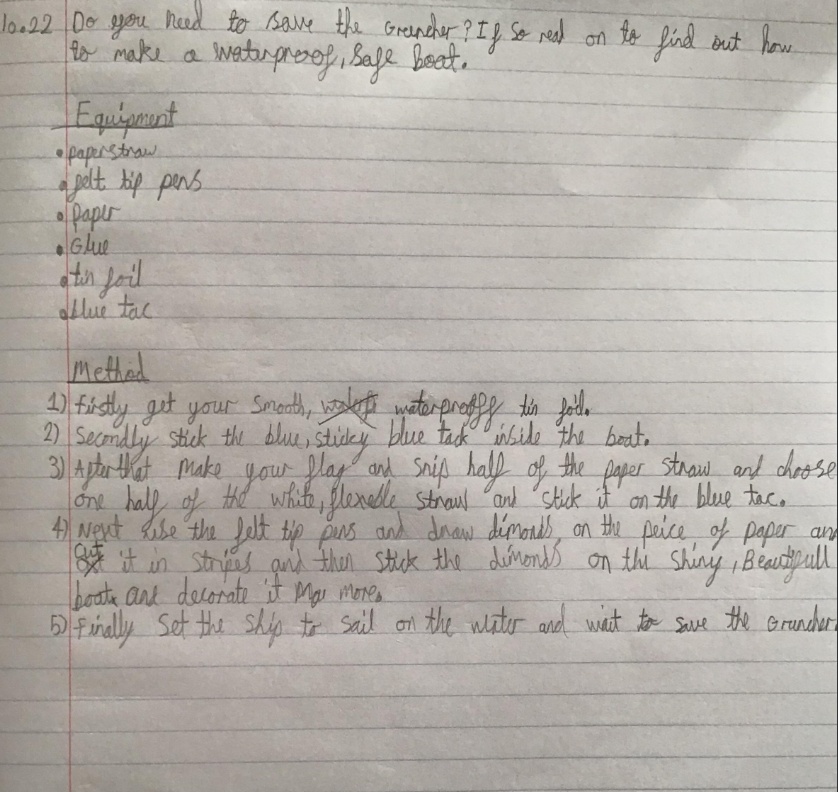 10.22 Do you need to save the Cruncher? If so read on to find out how
to make a waterproof, Safe boat.
Equipment
• paperstraw
• felt tip pens
• paper
• Glue
• tin foil
• blue tac
Method
1) Firstly get your smooth, waterprooff tin foil.
2) Secondly stick the blue, sticky blue tack inside the boat.
3) After that make your flag and snip half of the paper straw and choose
one half of the white, flexelle straw and stick it on the blue tac.
4) Next use the felt tip pens and draw dimonds, on the peice of paper an
Cut it in stripes and then stick the dimonds on the shiny, Beautifull
boat and decorate it more.
5) Finally set the ship to sail on the water and wait to save the Cruncher